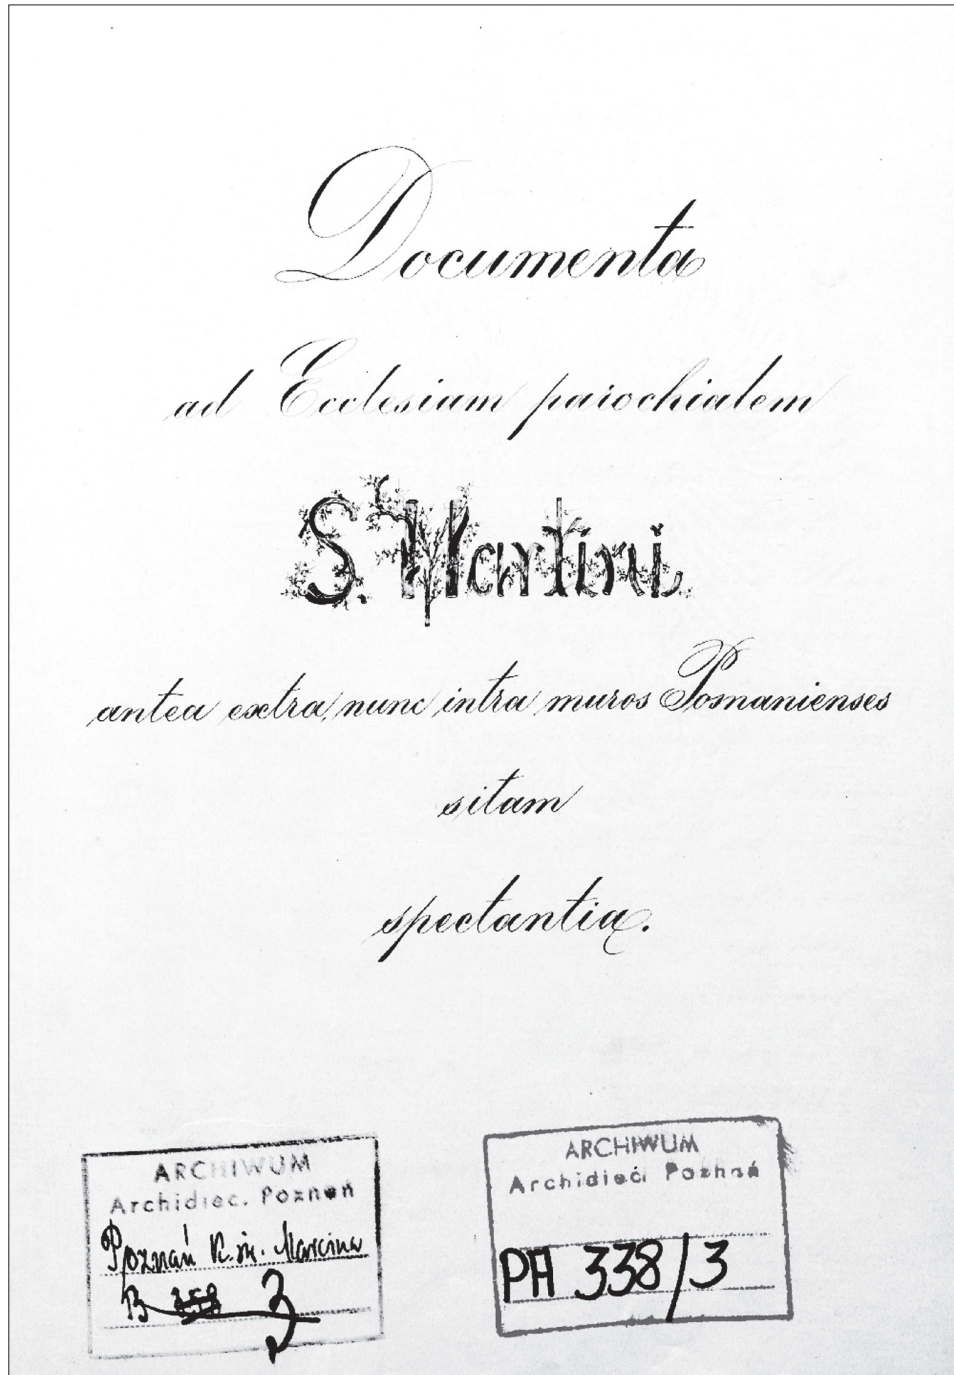 Documenta
ad Ecclesiam parochialem
S. Martini
antea extra, nunc intra muros Posnanienses
sitam
spectantia.
ARCHIWUM
Archidiec. Poznań
Poznań K. św. Marcina
B 3
ARCHIWUM
Archidiec. Poznań
PA 338/3